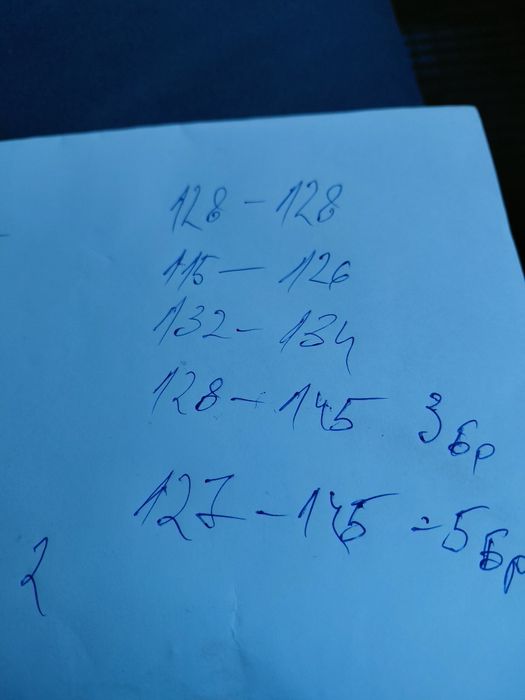 128 - 128
115 - 126
132 - 134
128 - 145 3бр
127 - 145 = 5бр
2